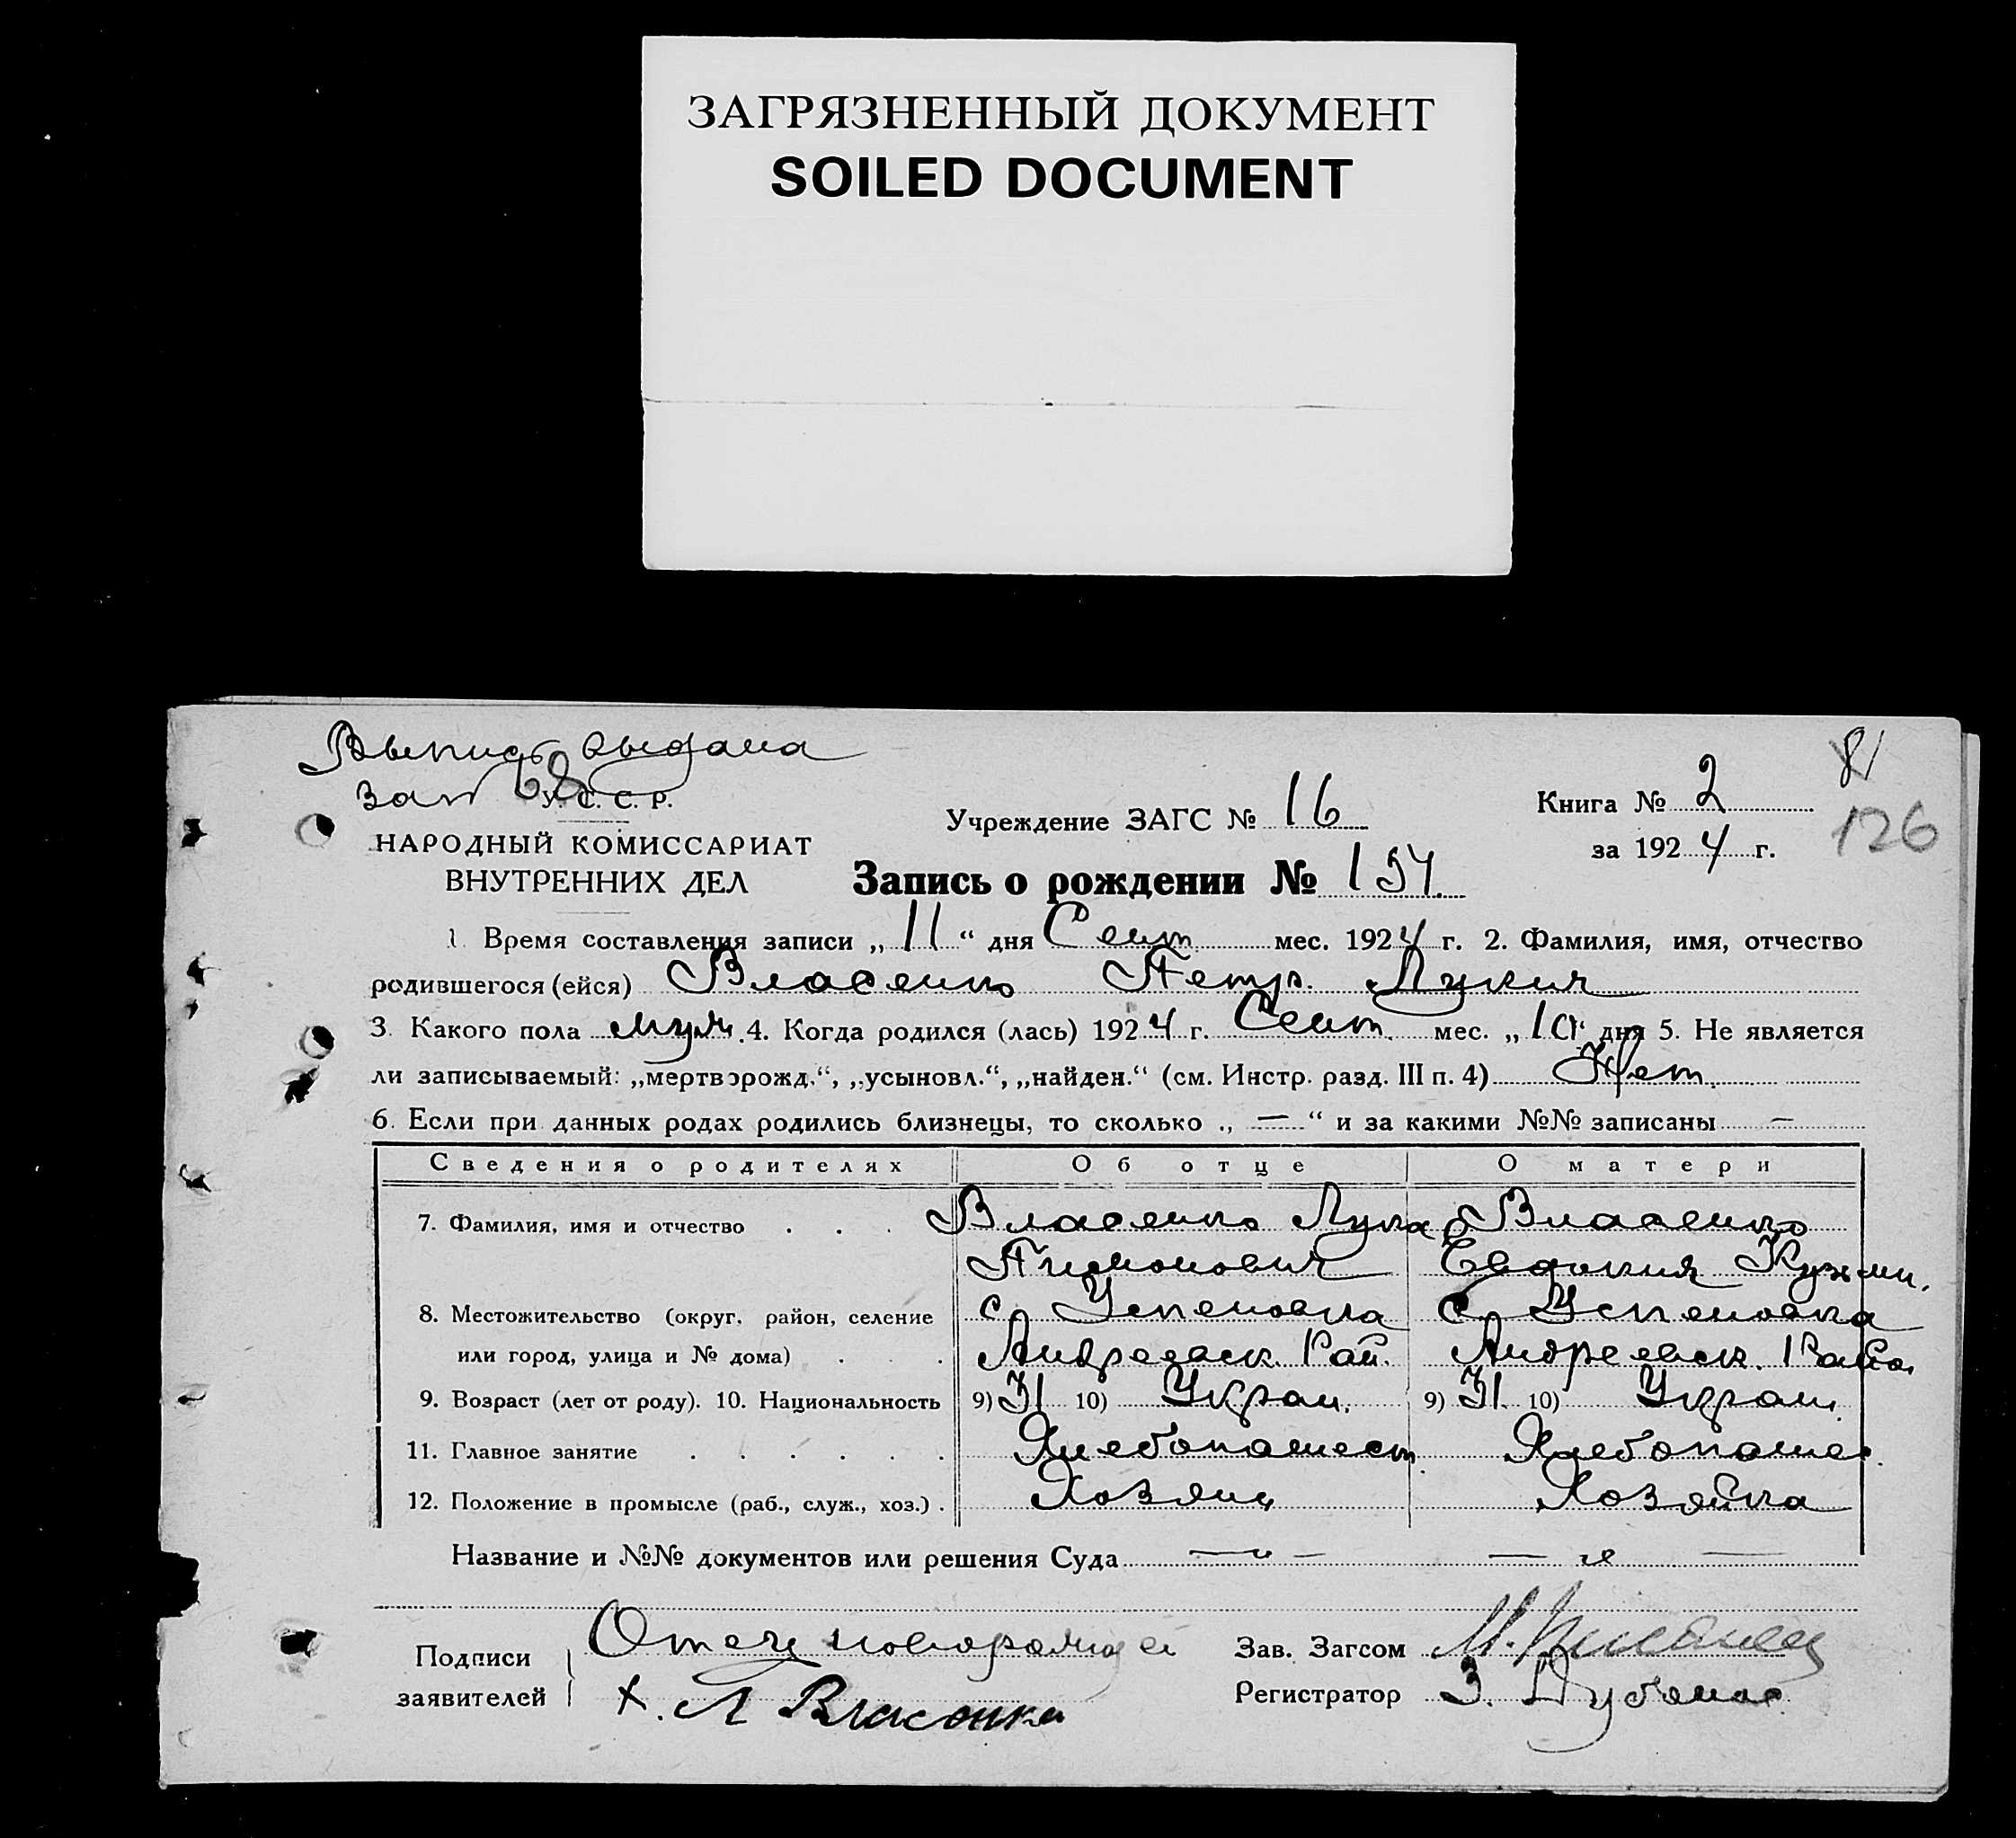 ЗАГРЯЗНЕННЫЙ ДОКУМЕНТ
SOILED DOCUMENT
Выпись выдана
за № 68
У. С. С. Р.
НАРОДНЫЙ КОМИССАРИАТ
ВНУТРЕННИХ ДЕЛ
Учреждение ЗАГС № 16
Книга № 2
81
за 1924 г.
126
Запись о рождении № 154
1. Время составления записи „11“ дня Сент мес. 1924 г. 2. Фамилия, имя, отчество
родившегося (ейся) Власенко Петр. Лукич
3. Какого пола муж. 4. Когда родился (лась) 1924 г. Сент. мес. „10“ дня 5. Не является
ли записываемый: „мертворожд.“, „усыновл.“, „найден.“ (см. Инстр. разд. III п. 4) Нет.
6. Если при данных родах родились близнецы, то сколько „ — “ и за какими №№ записаны —
Сведения о родителях Об отце О матери
7. Фамилия, имя и отчество . . . Власенко Лука Власенко
Евдокия Кузьми.
8. Местожительство (округ, район, селение с. Успеновка с. Успеновка
или город, улица и № дома) . . . Андреевск. Рай. Андреевск. Район
9. Возраст (лет от роду). 10. Национальность 9) 31 10) Украи. 9) 31. 10) Украи.
11. Главное занятие . . . . . . Хлебопашест. Хлебопашес.
12. Положение в промысле (раб., служ., хоз.) . Хозяин Хозяйка
Название и №№ документов или решения Суда — „ — — „ —
Подписи
заявителей
Отец новорожд
х. Л Власенко
Зав. Загсом М.
Регистратор З.